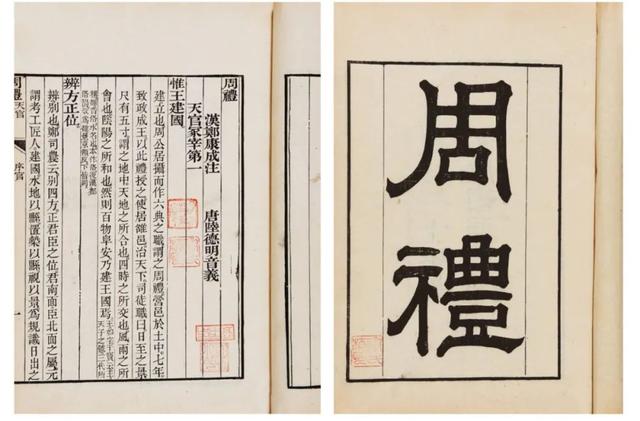 周禮
周禮
漢鄭康成注
唐陸德明音義
天官冢宰第一
惟王建國
建立也周公居攝而作六典之職謂之周禮營邑於土中七年
致政成王以此禮授之使居雒邑治天下司徒職曰日至之景
尺有五寸謂之地中天地之所合也四時之所交也風雨之所
會也陰陽之所和也然則百物阜安乃建王國焉
辨方正位
辨別也鄭司農云別四方正君臣之位君南面臣北面之屬元
謂考工匠人建國水地以縣置槷以縣視以景爲規識日出之
周禮 天官
序官
一